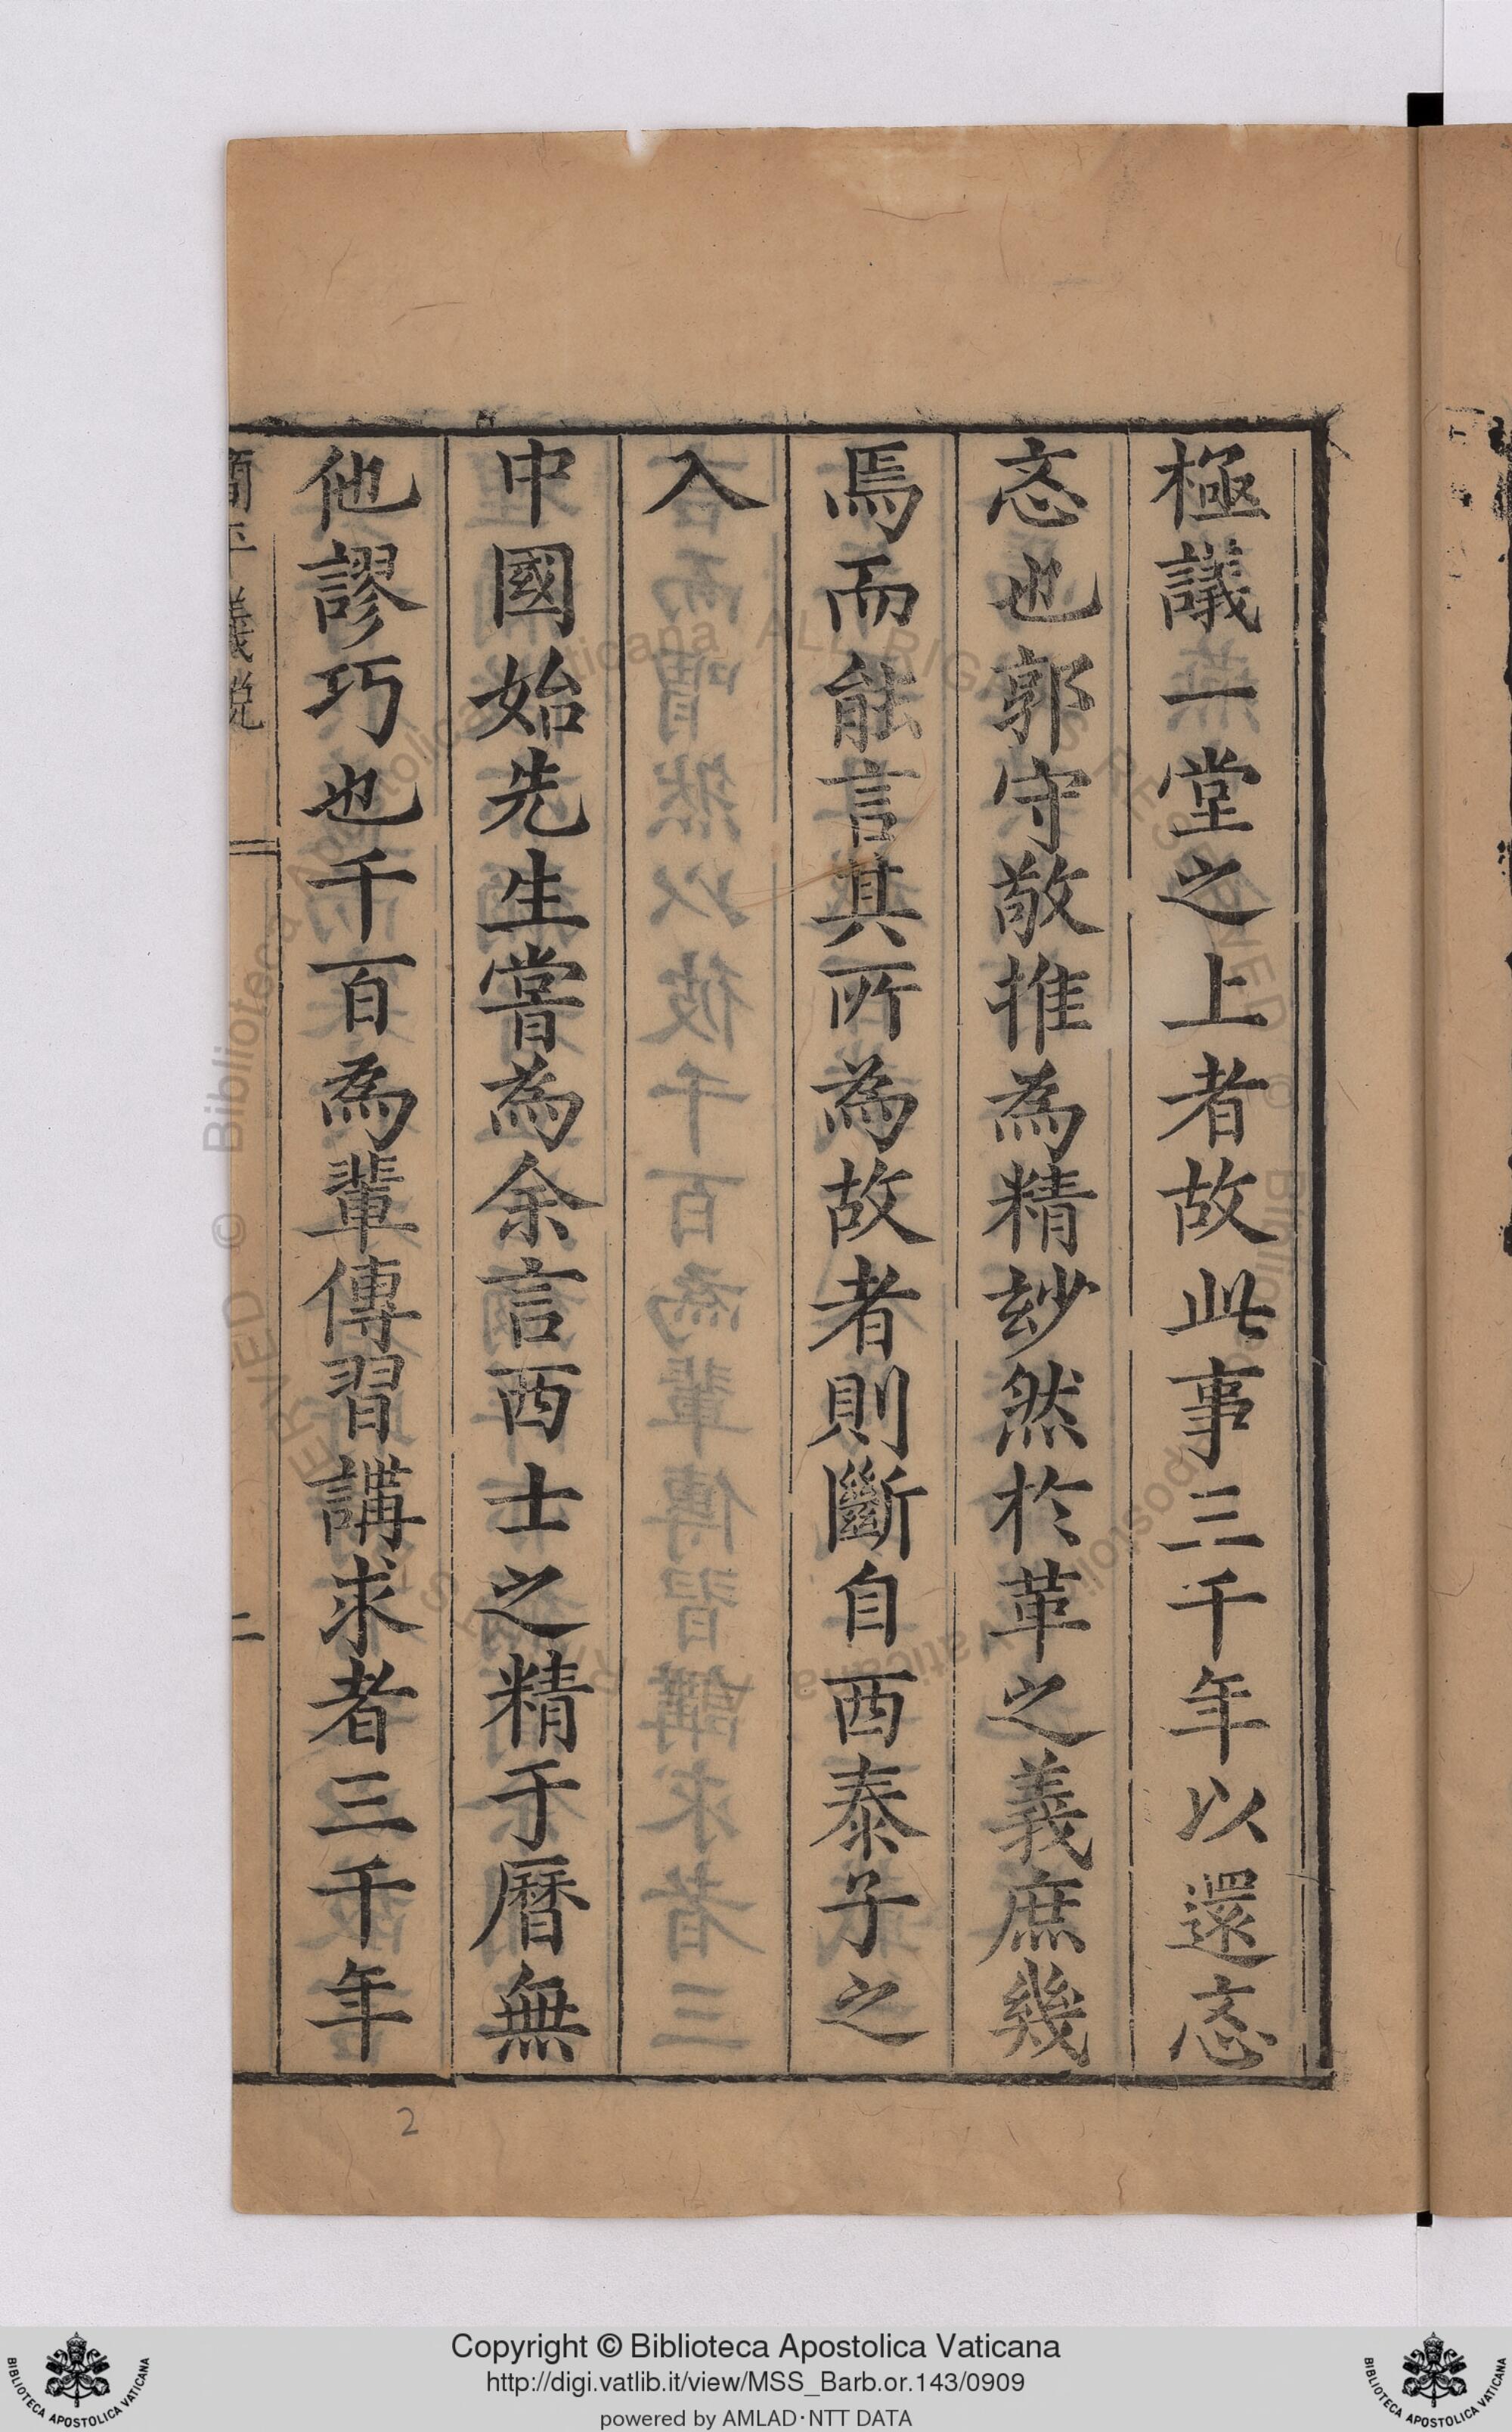 極議一堂之上者故此事三千年以還忞
忞也郭守敬推為精玅然於革之義庶幾
焉而能言其所為故者則斷自西泰子之
入
中國始先生嘗為余言西士之精于曆無
他謬巧也千百為輩傳習講求者三千年
簡平儀説
二
2
Copyright © Biblioteca Apostolica Vaticana
http://digi.vatlib.it/view/MSS_Barb.or.143/0909
powered by AMLAD·NTT DATA
BIBLIOTECA APOSTOLICA VATICANA
BIBLIOTECA APOSTOLICA VATICANA